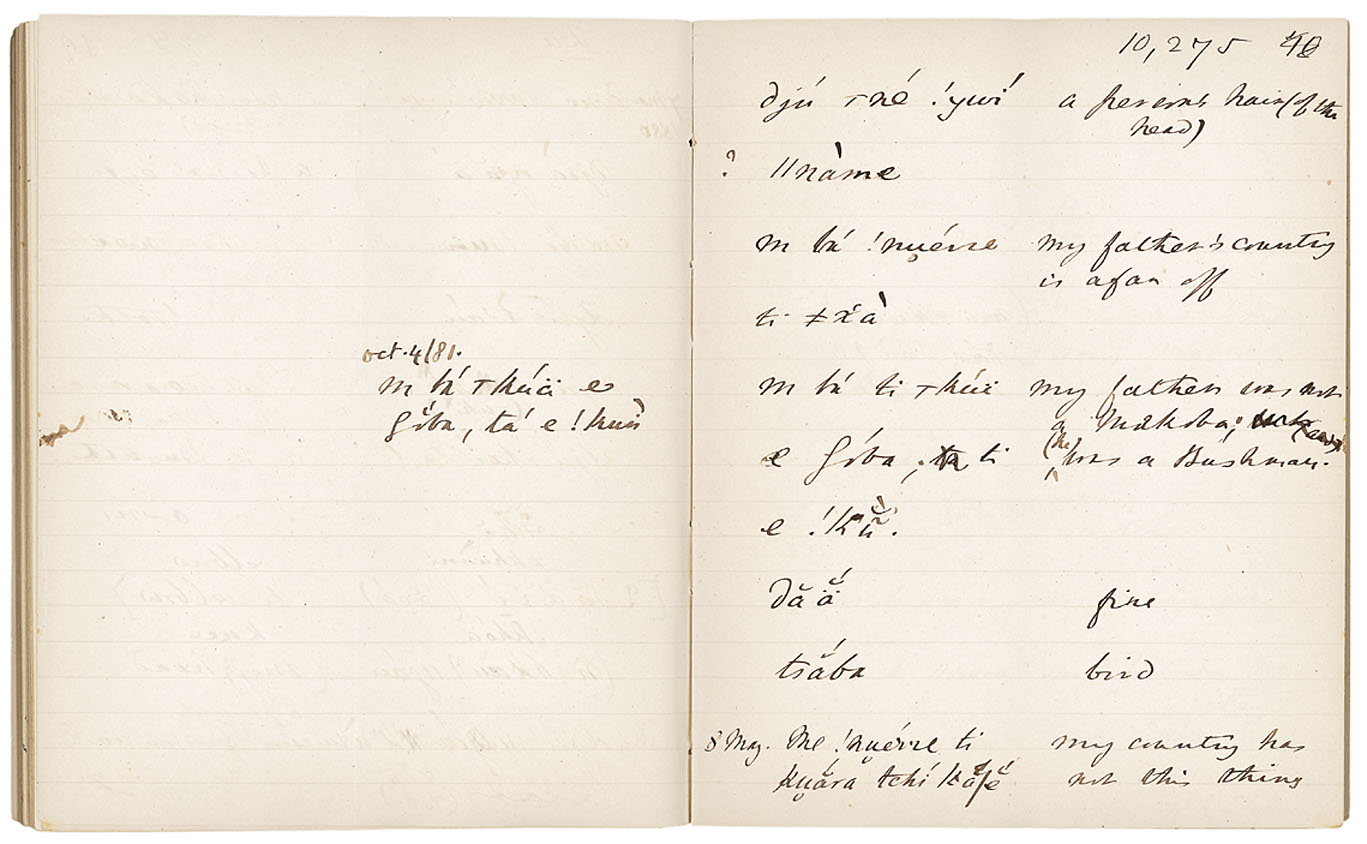 oct. 4/81.
m bá ┬kúä e
Góba, tá e !kuñ
10,275
djú ┬né !ywí a person's hair (of the
head)
? ǁnàme
m bá !nuérre my father's country
is afar off
ti ǂxà
m bá ti ┬kúä my father was not
e Góba, ti a Makoba;
(he) was a Bushman.
e !kű.
dăá fire
tsăba bird
8 My. Me !nuérre ti my country has
kuăra tchí not this thing